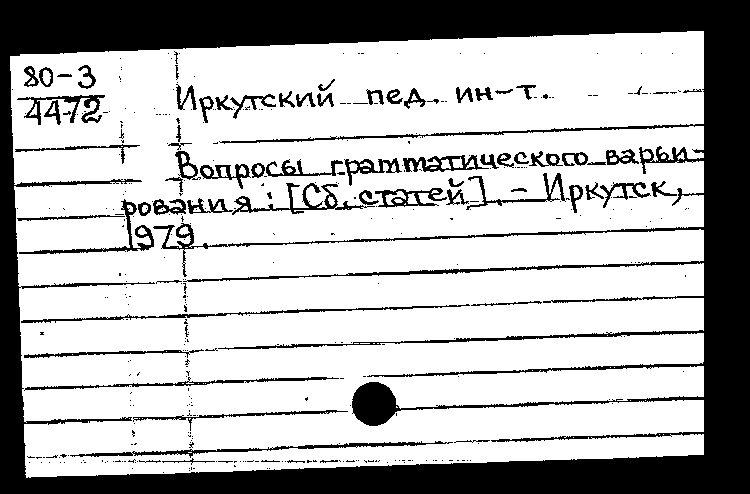 80-3
4472
Иркутский пед. ин-т.
Вопросы грамматического варьи-
рования : [Сб. статей]. - Иркутск,
1979.